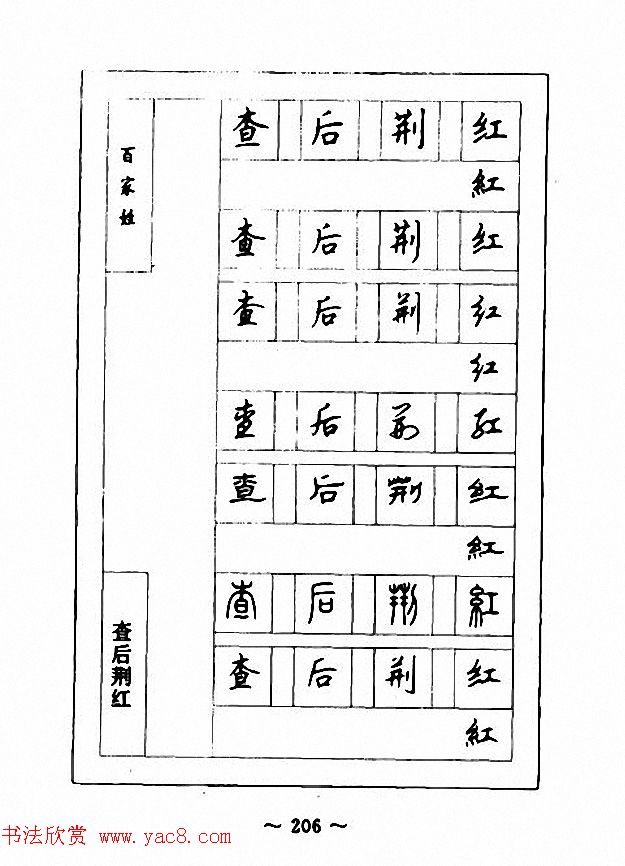 百家姓
查 后 荆 红
紅
查 后 荆 红
查 后 荆 红
红
查 后 荆 红
查 后 荆 红
紅
查 后 荆 紅
查 后 荆 红
紅
查后荆红
~ 206 ~
书法欣赏 www.yac8.com